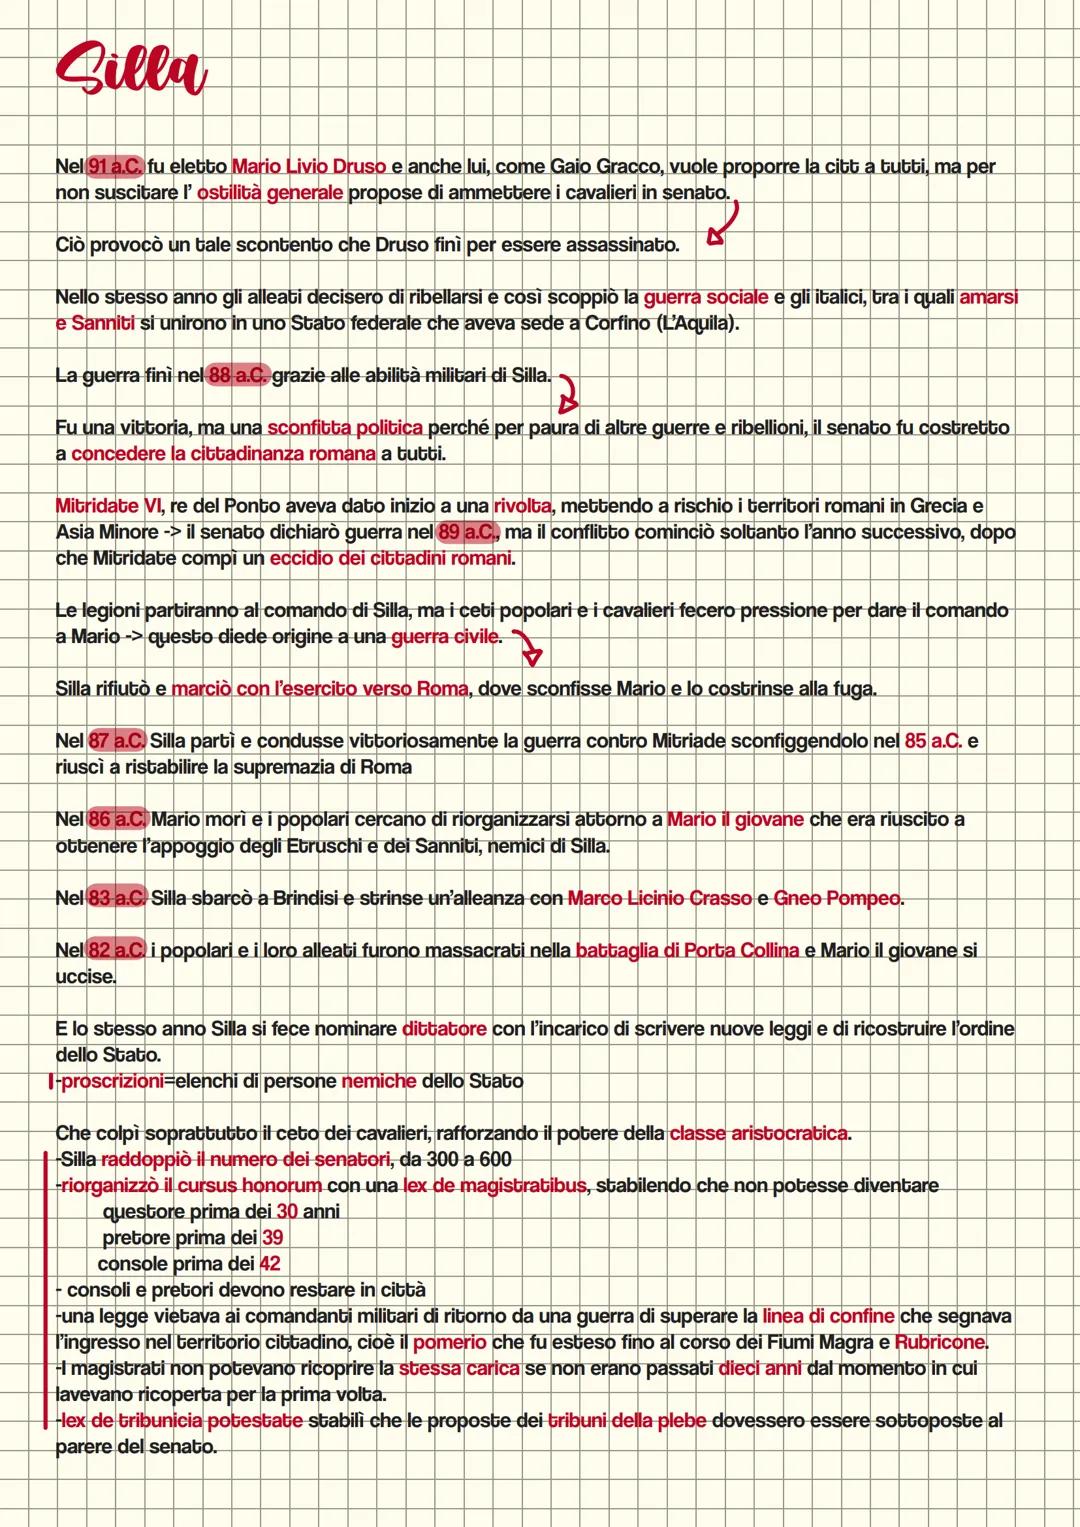 Silla
Nel 91 a.C. fu eletto Mario Livio Druso e anche lui, come Gaio Gracco, vuole proporre la citt a tutti, ma per
non suscitare l' ostilità generale propose di ammettere i cavalieri in senato.
Ciò provocò un tale scontento che Druso finì per essere assassinato.
Nello stesso anno gli alleati decisero di ribellarsi e così scoppiò la guerra sociale e gli italici, tra i quali amarsi
e Sanniti si unirono in uno Stato federale che aveva sede a Corfino (L'Aquila).
La guerra finì nel 88 a.C. grazie alle abilità militari di Silla.
Fu una vittoria, ma una sconfitta politica perché per paura di altre guerre e ribellioni, il senato fu costretto
a concedere la cittadinanza romana a tutti.
Mitridate VI, re del Ponto aveva dato inizio a una rivolta, mettendo a rischio i territori romani in Grecia e
Asia Minore -> il senato dichiarò guerra nel 89 a.C., ma il conflitto cominciò soltanto l'anno successivo, dopo
che Mitridate compì un eccidio dei cittadini romani.
Le legioni partiranno al comando di Silla, ma i ceti popolari e i cavalieri fecero pressione per dare il comando
a Mario -> questo diede origine a una guerra civile.
Silla rifiutò e marciò con l'esercito verso Roma, dove sconfisse Mario e lo costrinse alla fuga.
Nel 87 a.C. Silla partì e condusse vittoriosamente la guerra contro Mitriade sconfiggendolo nel 85 a.C. e
riuscì a ristabilire la supremazia di Roma
Nel 86 a.C. Mario morì e i popolari cercano di riorganizzarsi attorno a Mario il giovane che era riuscito a
ottenere l'appoggio degli Etruschi e dei Sanniti, nemici di Silla.
Nel 83 a.C. Silla sbarcò a Brindisi e strinse un'alleanza con Marco Licinio Crasso e Gneo Pompeo.
Nel 82 a.C. i popolari e i loro alleati furono massacrati nella battaglia di Porta Collina e Mario il giovane si
uccise.
E lo stesso anno Silla si fece nominare dittatore con l'incarico di scrivere nuove leggi e di ricostruire l'ordine
dello Stato.
-proscrizioni=elenchi di persone nemiche dello Stato
Che colpì soprattutto il ceto dei cavalieri, rafforzando il potere della classe aristocratica.
-Silla raddoppiò il numero dei senatori, da 300 a 600
-riorganizzò il cursus honorum con una lex de magistratibus, stabilendo che non potesse diventare
questore prima dei 30 anni
pretore prima dei 39
console prima dei 42
- consoli e pretori devono restare in città
-una legge vietava ai comandanti militari di ritorno da una guerra di superare la linea di confine che segnava
l'ingresso nel territorio cittadino, cioè il pomerio che fu esteso fino al corso dei Fiumi Magra e Rubricone.
-I magistrati non potevano ricoprire la stessa carica se non erano passati dieci anni dal momento in cui
lavevano ricoperta per la prima volta.
-lex de tribunicia potestate stabilì che le proposte dei tribuni della plebe dovessero essere sottoposte al
parere del senato.